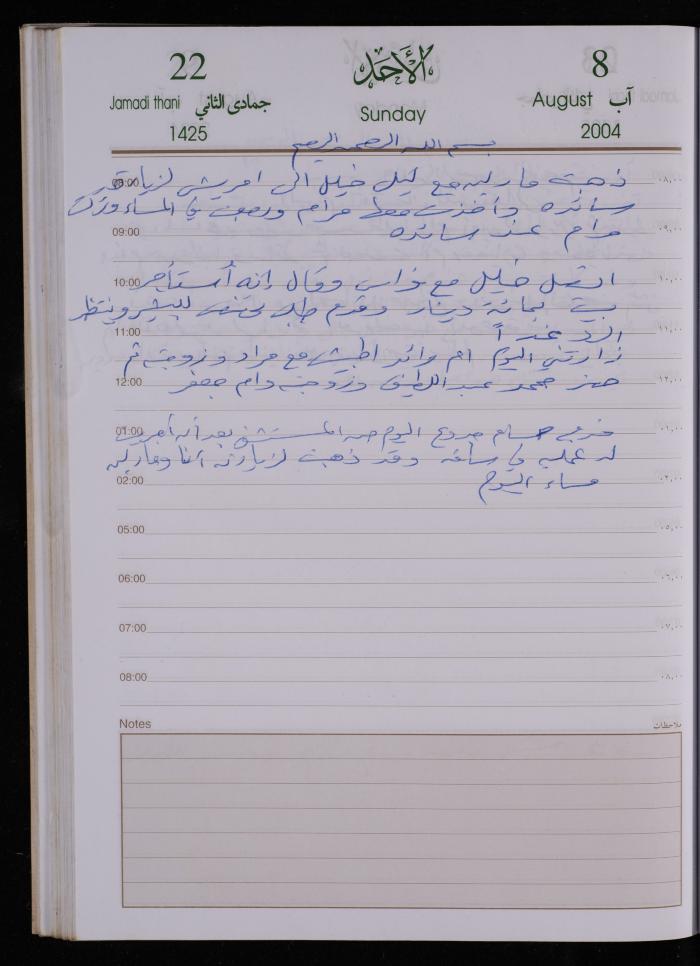 22 الأحد 8
Jamadi thani جمادى الثاني Sunday August آب
1425 2004
بسم الله الرحمن الرحيم
08:00 ذهبت ماريه مع ليل خليل الى امريش لزيارة ٠٨,٠٠
سائده وأخذت معها مرام ورجعت في المساء وتركت
09:00 مرام عند سائده ٠٩,٠٠
10:00 اتصل خليل مع فراس وقال إنه أستأجر ١٠,٠٠
بيت بمائة دينار وقدم طلب للبطيرو وينتظر
11:00 الرد غداً ١١,٠٠
زارتني اليوم ام رائد اطبيش مع مراد وزوجته ثم
12:00 حضر محمد عبد اللطيف وزوجته وام جعفر ١٢,٠٠
01:00 خرج حسام اليوم من المستشفى بعد أن أجريت ٠١,٠٠
له عمليه في ساقه وقد ذهبت لزيارته أنا وماريه
02:00 مساء اليوم ٠٢,٠٠
05:00 ٠٥,٠٠
06:00 ٠٦,٠٠
07:00 ٠٧,٠٠
08:00 ٠٨,٠٠
Notes ملاحظات